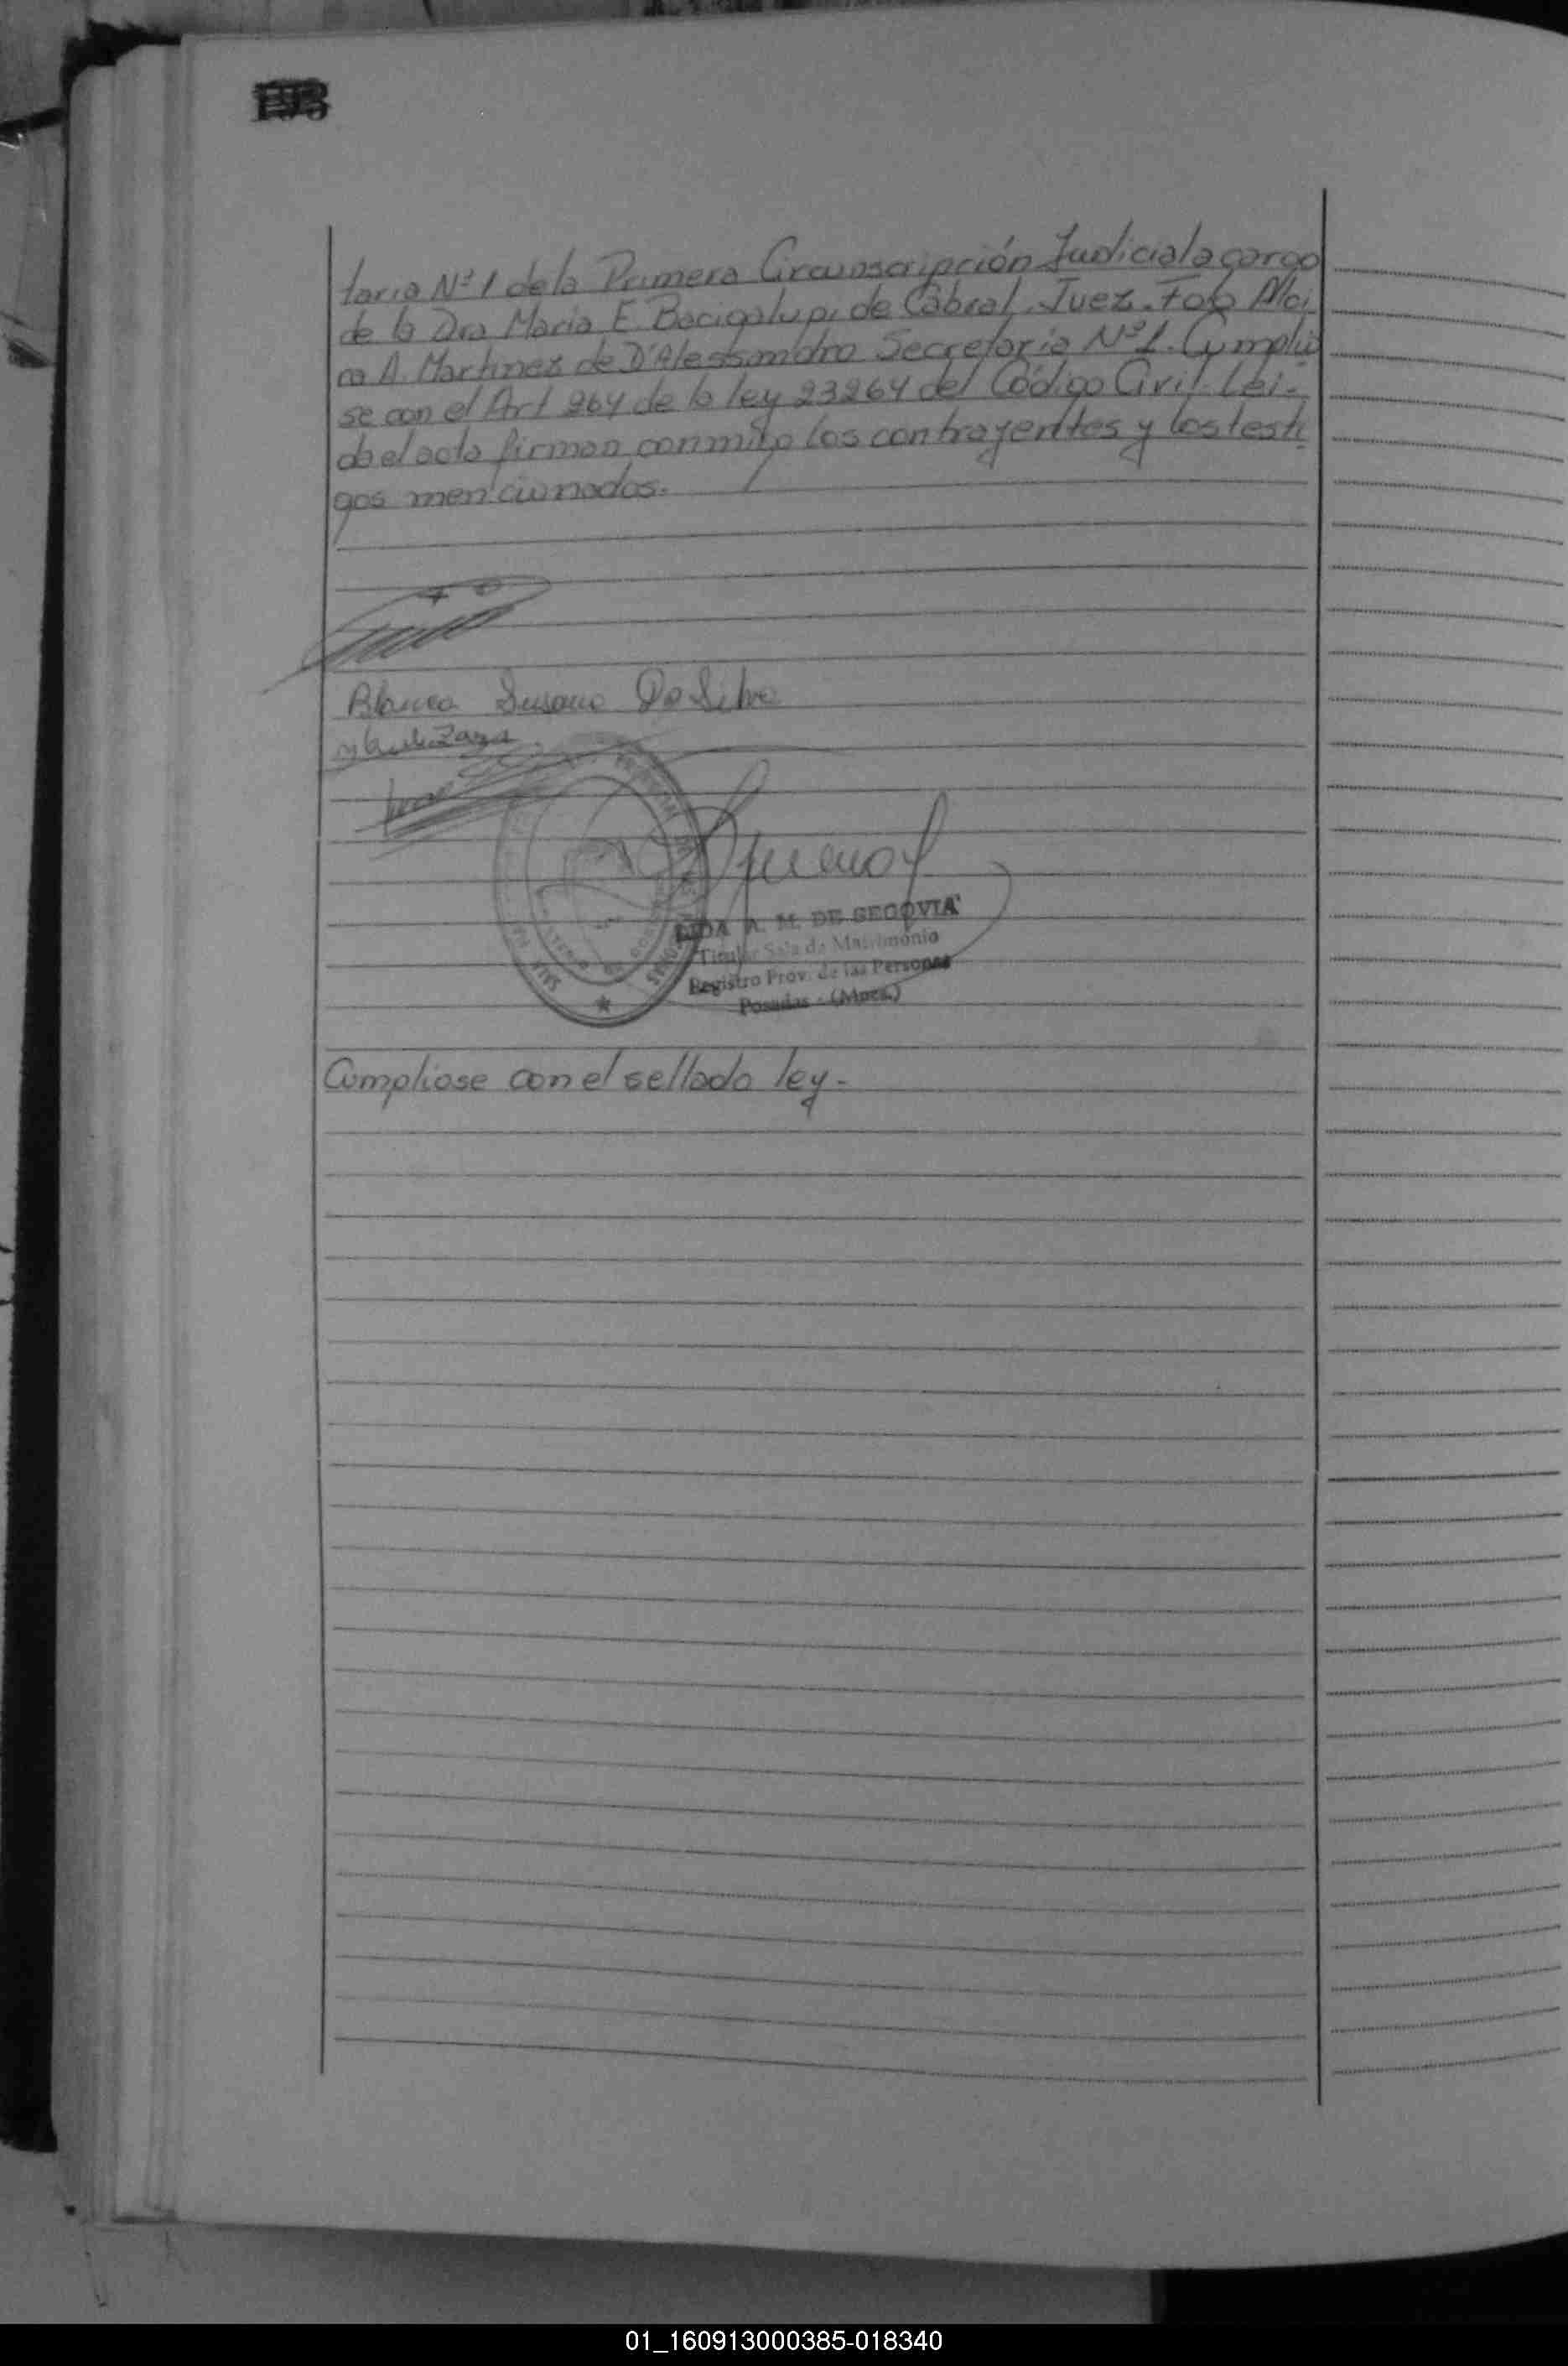 taria Nº 1 de la Primera Circunscripción Judicial a cargo
de la Dra Maria E. Bacigalupi de Cabral. Juez. Fdo Mo
A. Martinez de D'Alessandro Secretaria Nº 1. Cumplió
se con el Art 264 de la ley 23264 del Código Civil. Lei-
da el acta firman conmigo los contrayentes y los testi
gos mencionados.
Blanca Susana Da Silva
LIDA A. M. DE SEGOVIA
Titular Sala de Matrimonio
Registro Prov. de las Personas
Posadas - (Mnes.)
Cumpliose con el sellado ley.-
01_160913000385-018340